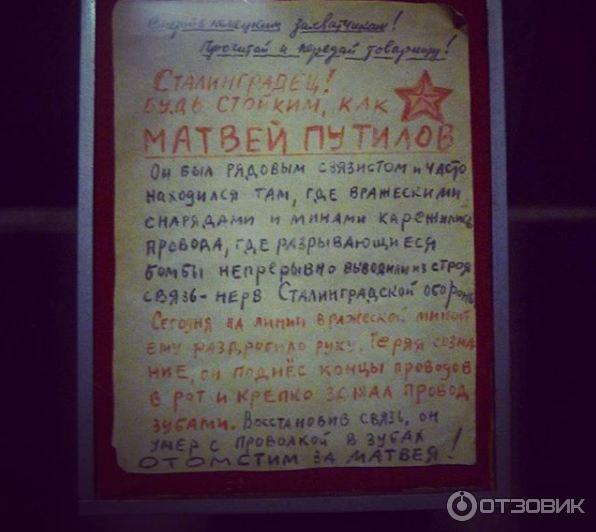 Смерть немецким захватчикам!
Прочитай и передай товарищу!
СТАЛИНГРАДЕЦ!
БУДЬ СТОЙКИМ, КАК
МАТВЕЙ ПУТИЛОВ
Он был рядовым связистом и часто
находился там, где вражескими
снарядами и минами карежились
провода, где разрывающиеся
бомбы непрерывно выводили из строя
связь-нерв Сталинградской обороны
Сегодня на линии вражеской миной
ему раздробило руку. Теряя созна
ние, он поднёс концы проводов
в рот и крепко зажал провод
зубами. Восстановив связь, он
умер с проволкой в зубах
ОТОМСТИМ ЗА МАТВЕЯ!
ОТЗОВИК